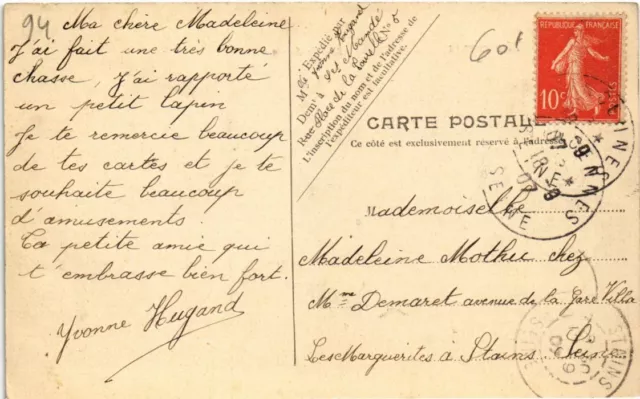 94
Ma chère Madeleine
J'ai fait une très bonne
chasse, J'ai rapporté
un petit lapin
Je te remercie beaucoup
de tes cartes et je te
souhaite beaucoup
d'amusements.
Ta petite amie qui
t'embrasse bien fort.
Yvonne Hugand
Expédié par
M Yvonne Hugand
Demt à
Rue Place de la Nº 5
L'inscription du nom et de l'adresse de
l'expéditeur est facultative.
60f
REPUBLIQUE FRANÇAISE
10c
POSTES
CARTE POSTALE
Ce côté est exclusivement réservé à l'adresse
Mademoiselle
Madeleine Mothu chez
Mme Demaret avenue de la Gare Villa
Les Marguerites à Stains Seine
SEINE
STAINS